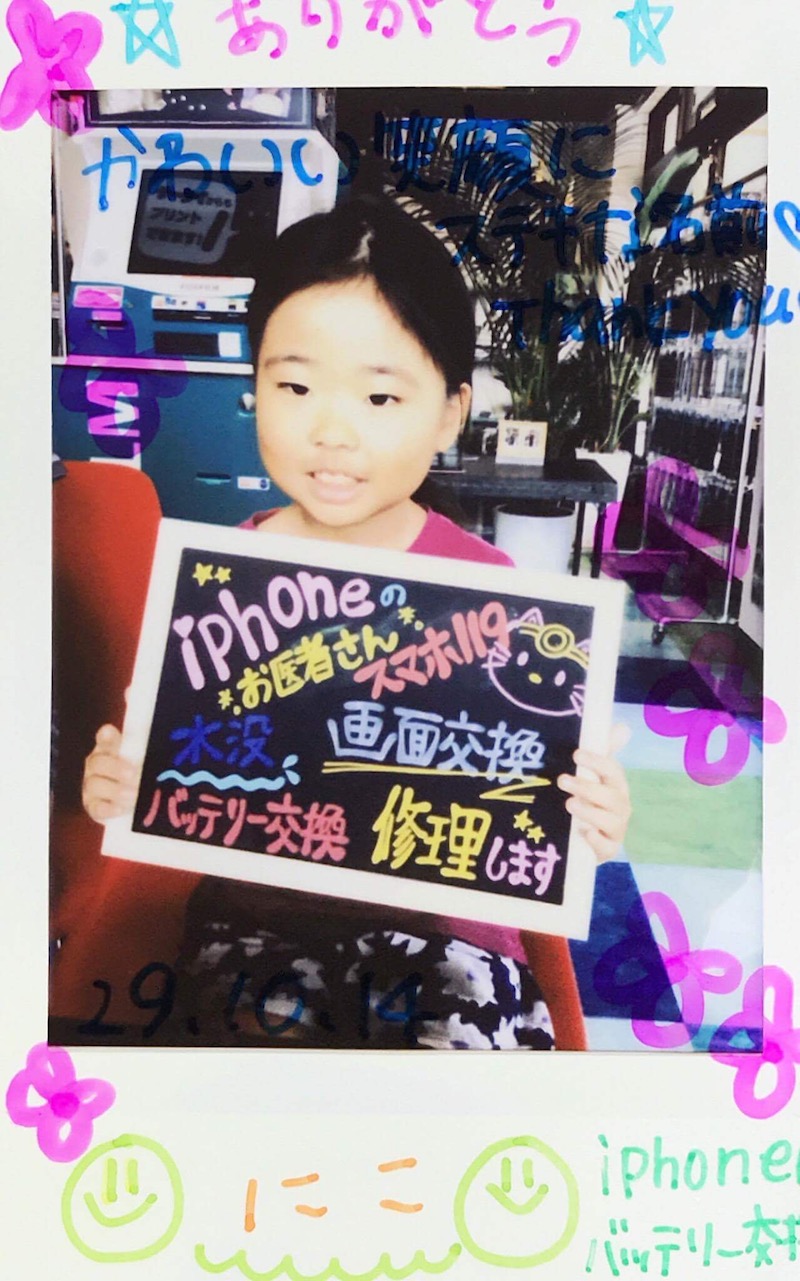 ありがとう
かわいい笑顔に
ステキな名前♡
Thank you
プリント
できます!
iphoneの
お医者さん
スマホ119
水没 画面交換
バッテリー交換 修理します
29.10.14
にこ
iphone
バッテリー交